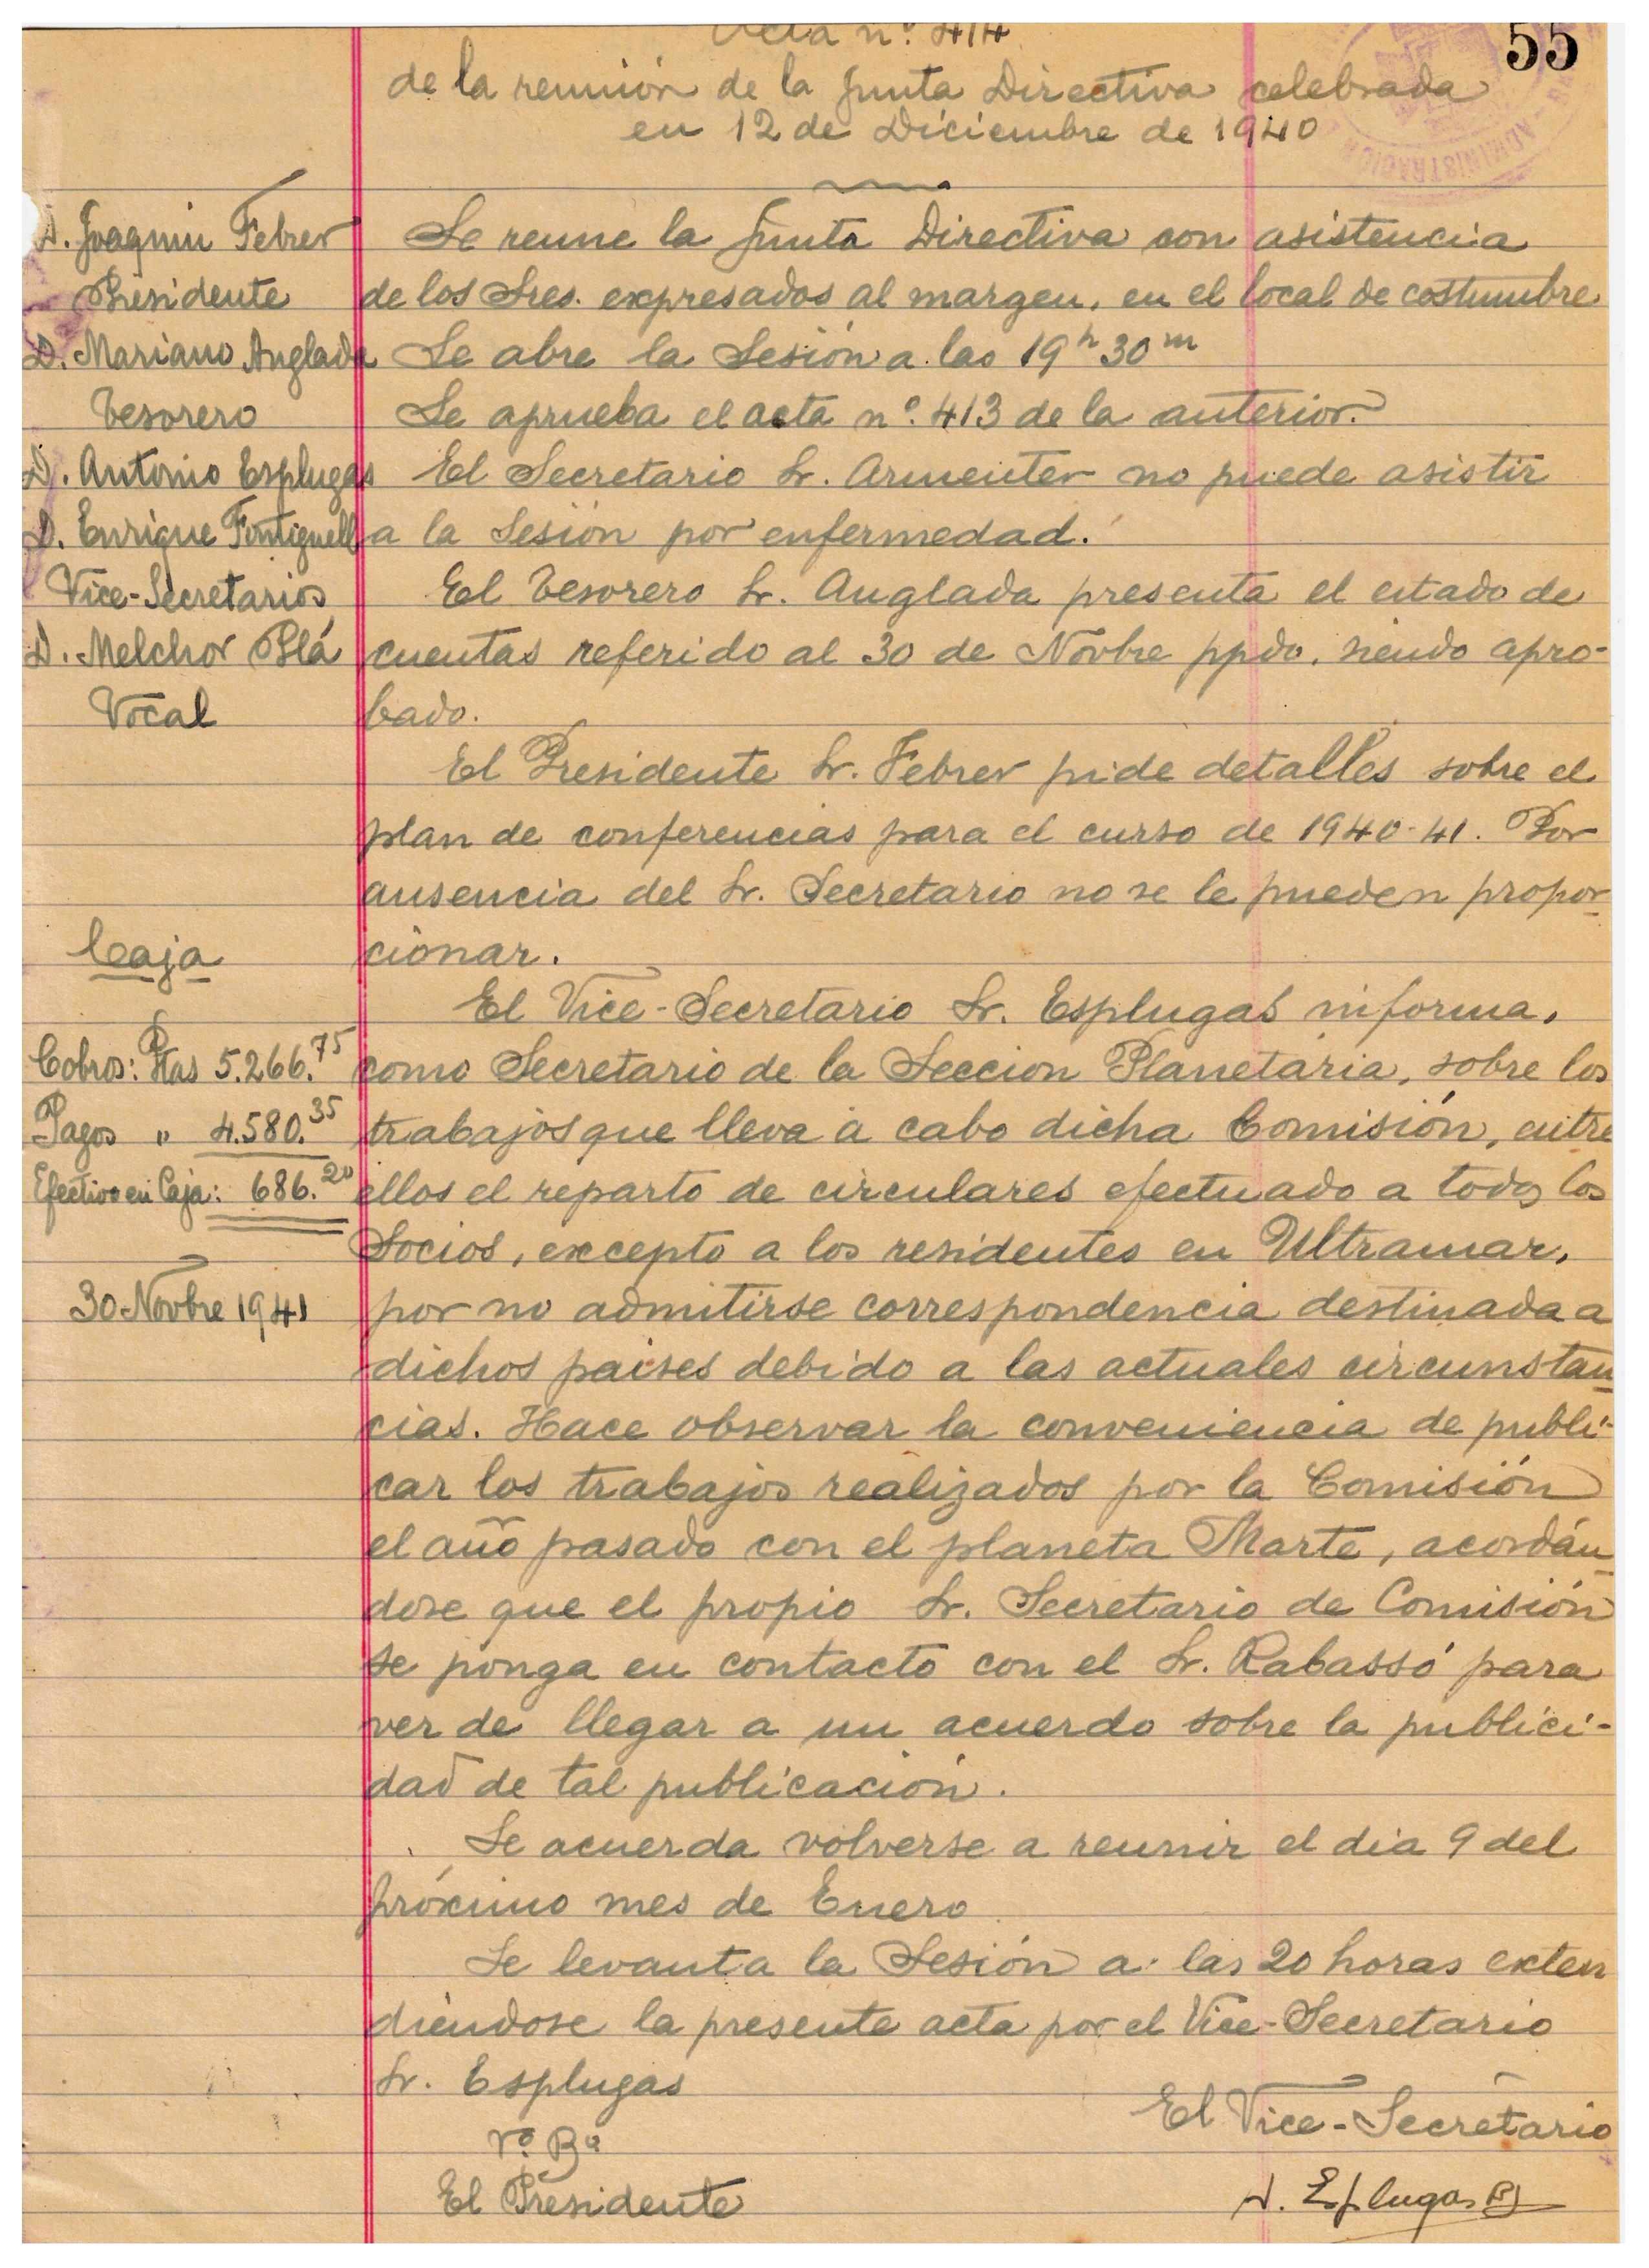 55
Acta nº. 414
de la reunión de la Junta Directiva celebrada
en 12 de Diciembre de 1940
ADMINISTRACION
D. Joaquin Febrer
Presidente
D. Mariano Anglada
Tesorero
D. Antonio Esplugas
D. Enrique Fontiguell
Vice-Secretarios
D. Melchor Plá
Vocal
Caja
Cobros: Ptas 5.266.75
Pagos " 4.580.35
Efectivo en Caja: 686.20
30 Novbre 1941
Se reune la Junta Directiva con asistencia
de los Sres. expresados al margen, en el local de costumbre
Se abre la Sesión a las 19h 30m
Se aprueba el acta nº. 413 de la anterior.
El Secretario Sr. Armenter no puede asistir
a la Sesión por enfermedad.
El Tesorero Sr. Anglada presenta el estado de
cuentas referido al 30 de Novbre ppdo, siendo apro-
bado.
El Presidente Sr. Febrer pide detalles sobre el
plan de conferencias para el curso de 1940-41. Por
ausencia del Sr. Secretario no se le pueden propor
cionar.
El Vice-Secretario Sr. Esplugas informa,
como Secretario de la Seccion Planetaria, sobre los
trabajos que lleva a cabo dicha Comisión, entre
ellos el reparto de circulares efectuado a todos los
Socios, excepto a los residentes en Ultramar,
por no admitirse correspondencia destinada a
dichos paises debido a las actuales circunstan
cias. Hace observar la conveniencia de publi-
car los trabajos realizados por la Comisión
el año pasado con el planeta Marte, acordán
dose que el propio Sr. Secretario de Comisión
se ponga en contacto con el Sr. Rabassó para
ver de llegar a un acuerdo sobre la publici-
dad de tal publicación.
Se acuerda volverse a reunir el dia 9 del
próximo mes de Enero
Se levanta la Sesión a las 20 horas exten
diéndose la presente acta por el Vice-Secretario
Sr. Esplugas
El Vice-Secretario
Vº Bº
El Presidente
A. Esplugas